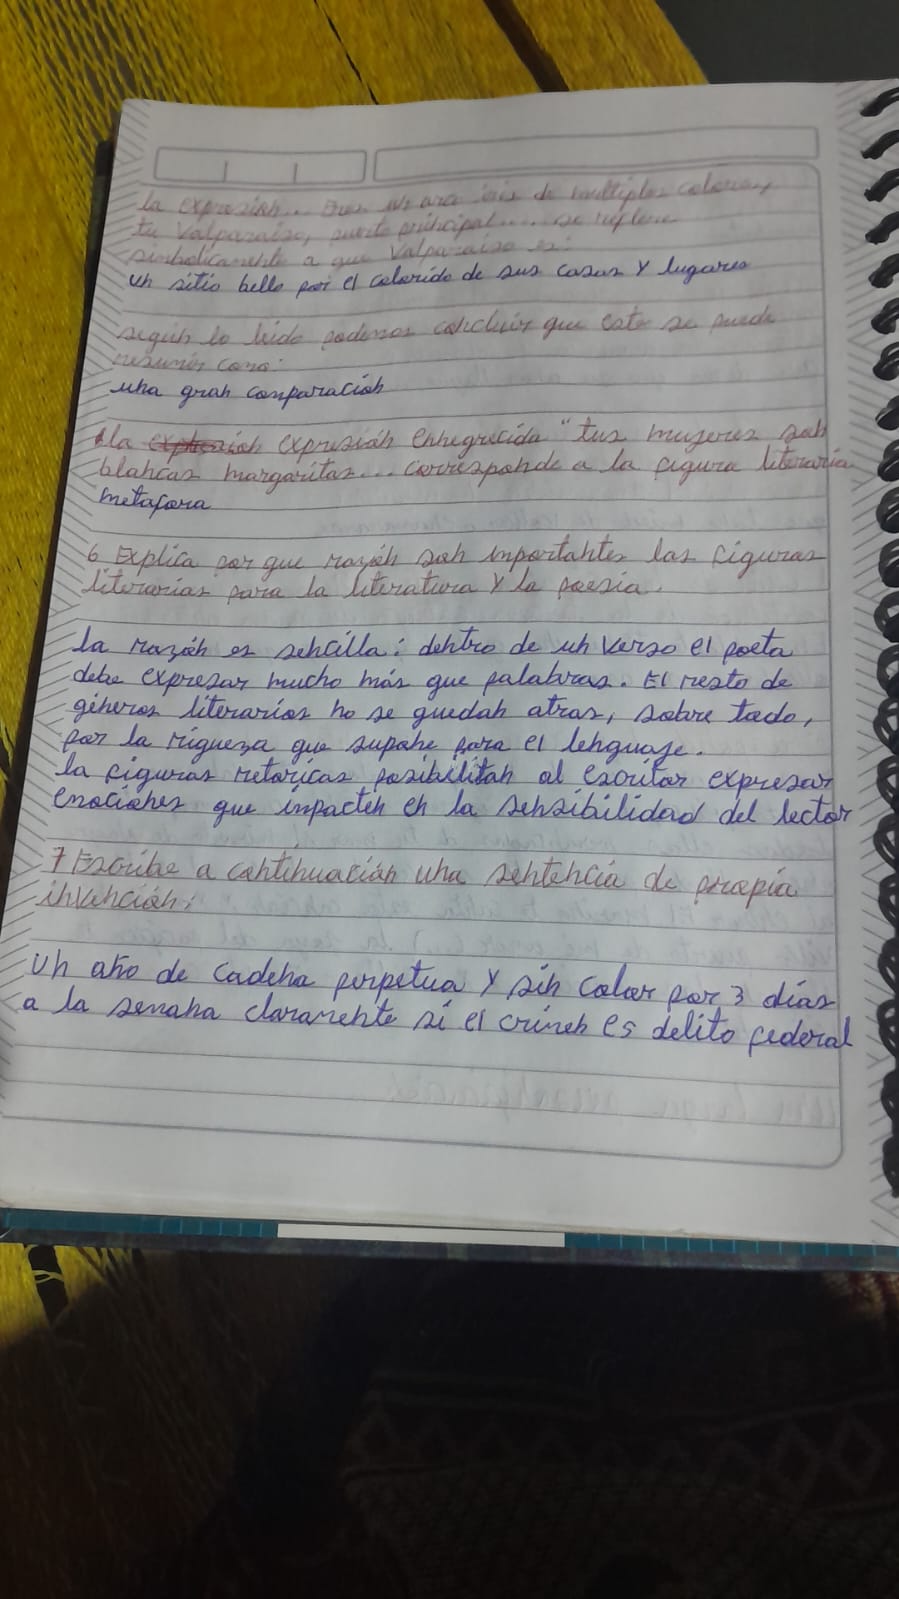 la expresión... Eres un arco iris de multiples colores,
tu Valparaiso, puerto principal.... se refiere
simbolicamente a que Valparaiso es:
un sitio bello por el colorido de sus casas y lugares
según lo leido podemos concluir que esto se puede
resumir como:
una gran comparación
la expresión ennegrecida "tus mujeres son
blancas margaritas... corresponde a la figura literaria
metafora
6 Explica por que razón son importantes las figuras
literarias para la literatura y la poesía.
la razón es sencilla: dentro de un verso el poeta
debe expresar mucho más que palabras. El resto de
géneros literarios no se quedan atras, sobre todo,
por la riqueza que supone para el lenguaje.
la figuras retoricas posibilitan al escritor expresar
emociones que impacten en la sensibilidad del lector
7 Escribe a continuación una sentencia de propia
invención:
un año de cadena perpetua y sin color por 3 días
a la semana claramente si el crimen es delito federal